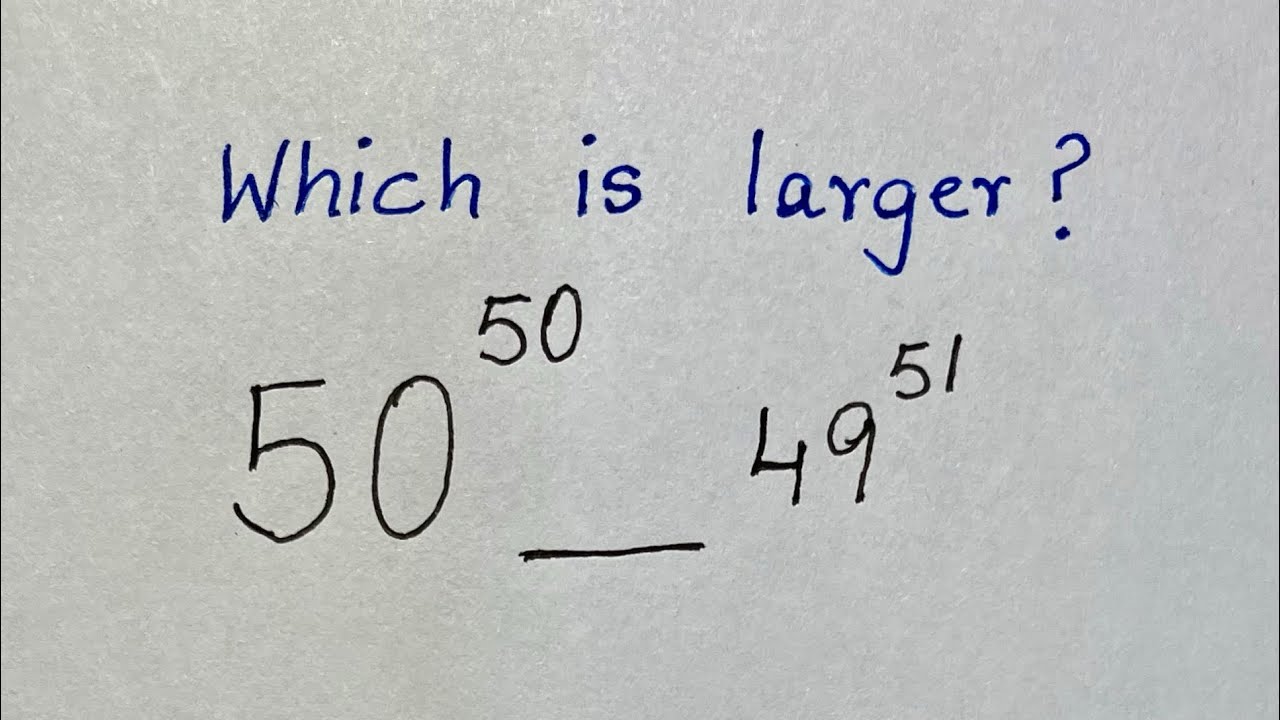 Which is larger?
50^50 __ 49^51